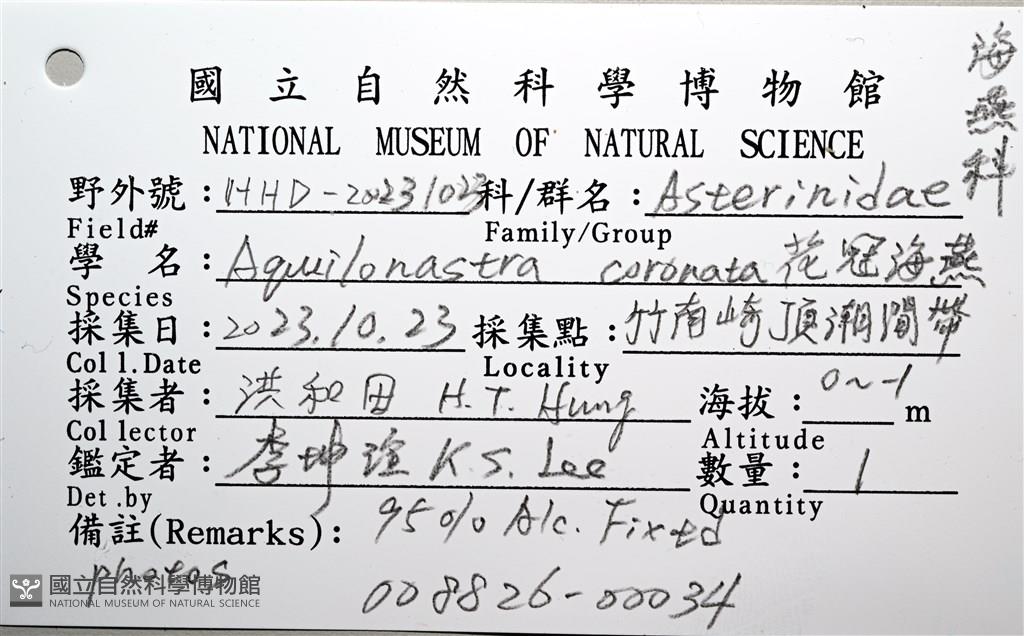 海燕科
國立自然科學博物館
NATIONAL MUSEUM OF NATURAL SCIENCE
野外號：HHD-20231023 科/群名：Asterinidae
Field# Family/Group
學 名：Aquilonastra coronata 花冠海燕
Species
採集日：2023.10.23 採集點：竹南崎頂潮間帶
Coll.Date Locality
採集者：洪和田 H.T. Hung 海拔：0~-1 m
Collector Altitude
鑑定者：李坤瑄 K.S. Lee 數量：1
Det.by Quantity
備註(Remarks)：95% Alc. Fixed
photos
008826-00034
國立自然科學博物館
NATIONAL MUSEUM OF NATURAL SCIENCE